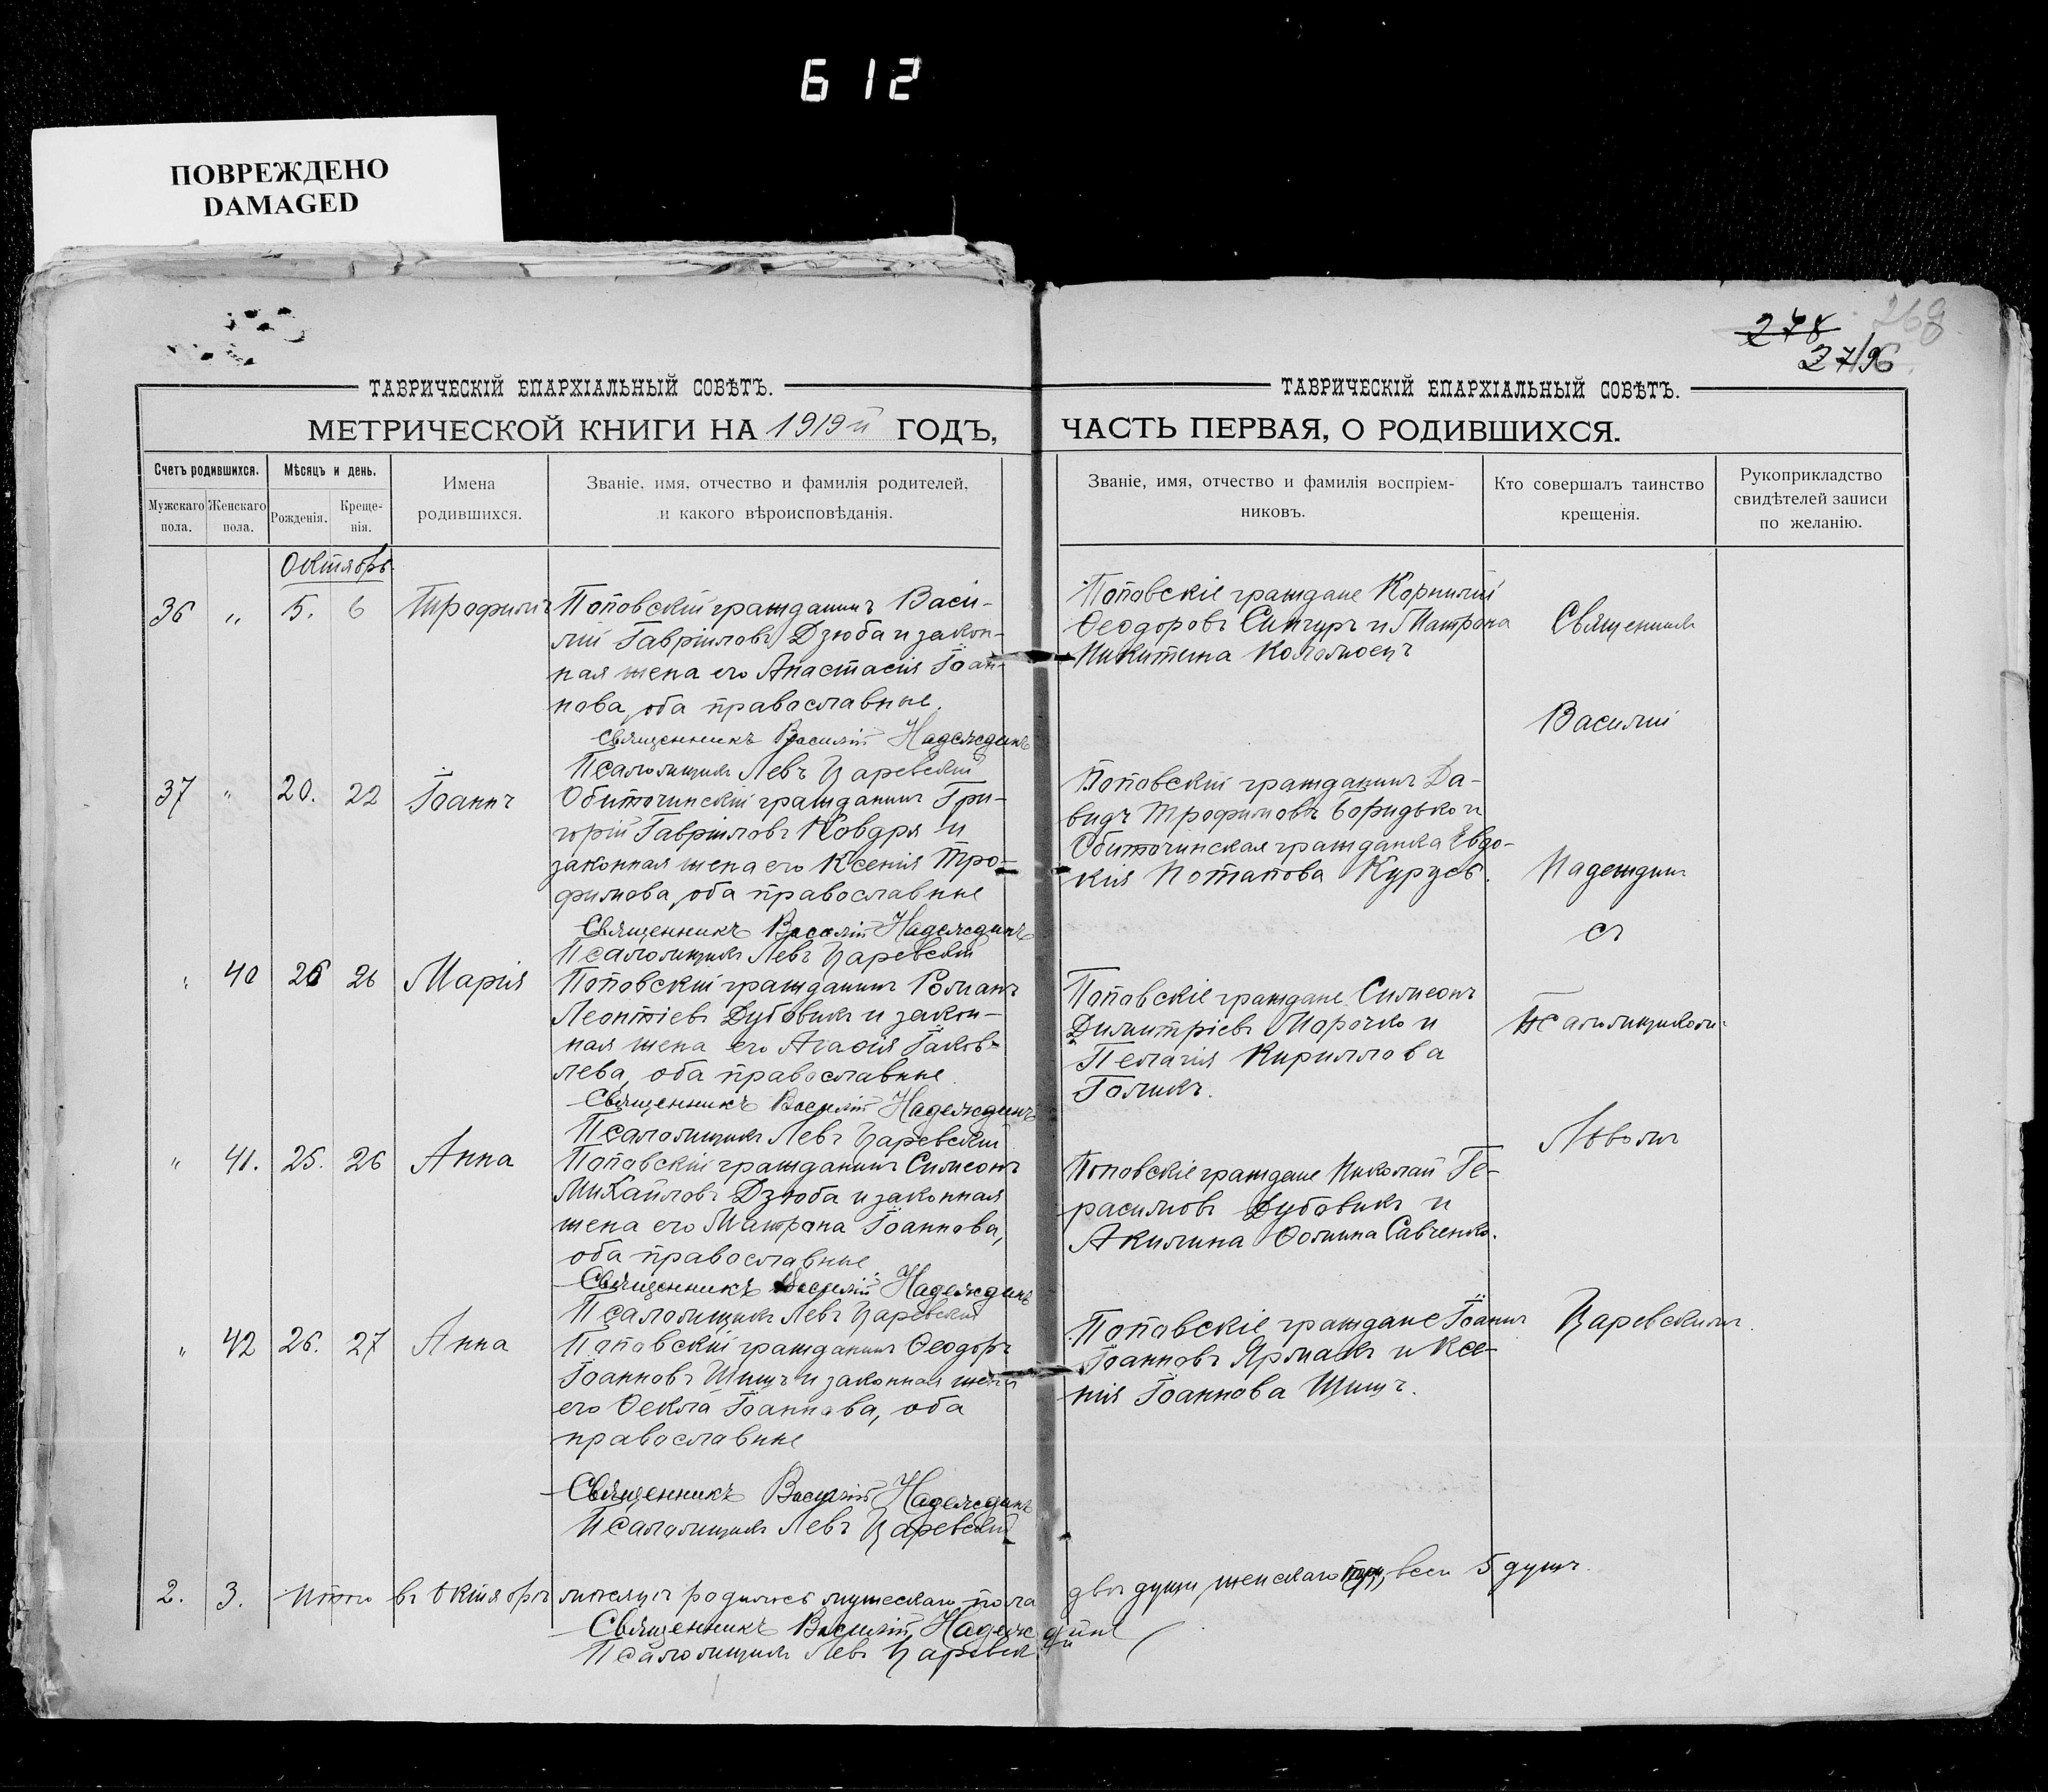 612
ПОВРЕЖДЕНО
DAMAGED
278
268
ТАВРИЧЕСКІЙ ЕПАРХІАЛЬНЫЙ СОВѢТЪ.
МЕТРИЧЕСКОЙ КНИГИ НА 1919й ГОДЪ,
Счетъ родившихся.
Мужскаго пола.
Женскаго пола.
Мѣсяцъ и день.
Рожденія.
Креще-
нія.
Имена
родившихся.
Званіе, имя, отчество и фамилія родителей,
и какого вѣроисповѣданія.
Октябрь
36 " 5. 6 Трофимъ
Поповскій гражданинъ Васи-
лій Гавріиловъ Дзюба и закон-
ная жена его Анастасія Іоан-
нова, оба православные.
Священникъ Василій Надеждинъ
Псаломщикъ Левъ Царевскій
37 " 20. 22 Іоаннъ
Обиточинскій гражданинъ Гри-
горій Гавріиловъ Ковдря и
законная жена его Ксенія Тро-
фимова, оба православные
Священникъ Василій Надеждинъ
Псаломщикъ Левъ Царевскій
" 40 26 26 Марія
Поповскій гражданинъ Романъ
Леонтіевъ Дубовикъ и закон-
ная жена его Агаѳія Іаков-
лева, оба православные.
Священникъ Василій Надеждинъ
Псаломщикъ Левъ Царевскій
" 41. 25. 26 Анна
Поповскій гражданинъ Симеонъ
Михайловъ Дзюба и законная
жена его Матрона Іоаннова,
оба православные
Священникъ Василій Надеждинъ
Псаломщикъ Левъ Царевскій
" 42 26. 27 Анна
Поповскій гражданинъ Ѳеодоръ
Іоанновъ Шищъ и законная жена
его Ѳекла Іоаннова, оба
православные
Священникъ Василій Надеждинъ
Псаломщикъ Левъ Царевскій
2. 3. Итого въ Октябрѣ мѣсяцѣ родилось мужескаго пола
двѣ души, женскаго три, всего 5 душъ.
Священникъ Василій Надеждинъ
Псаломщикъ Левъ Царевскій
ТАВРИЧЕСКІЙ ЕПАРХІАЛЬНЫЙ СОВѢТЪ.
ЧАСТЬ ПЕРВАЯ, О РОДИВШИХСЯ.
Званіе, имя, отчество и фамилія воспріем-
никовъ.
Кто совершалъ таинство
крещенія.
Рукоприкладство
свидѣтелей записи
по желанію.
Поповскіе граждане Корнилій
Ѳеодоровъ Сингуръ и Матрона
Никитина Коломоецъ
Поповскій гражданинъ Да-
видъ Трофимовъ и
Обиточинская гражданка Евдо-
кія Потапова
Поповскіе граждане Симеонъ
Димитріевъ Морочко и
Пелагія Кириллова
Голикъ.
Поповскіе граждане Николай Ге-
расимовъ Дубовикъ и
Акилина Ѳомина Савченко.
Поповскіе граждане Іоаннъ
Іоанновъ Ярмакъ и Ксе-
нія Іоаннова Шищъ.
Священникъ
Василій
Надеждинъ
съ
Псаломщикомъ
Львомъ
Царевскимъ.